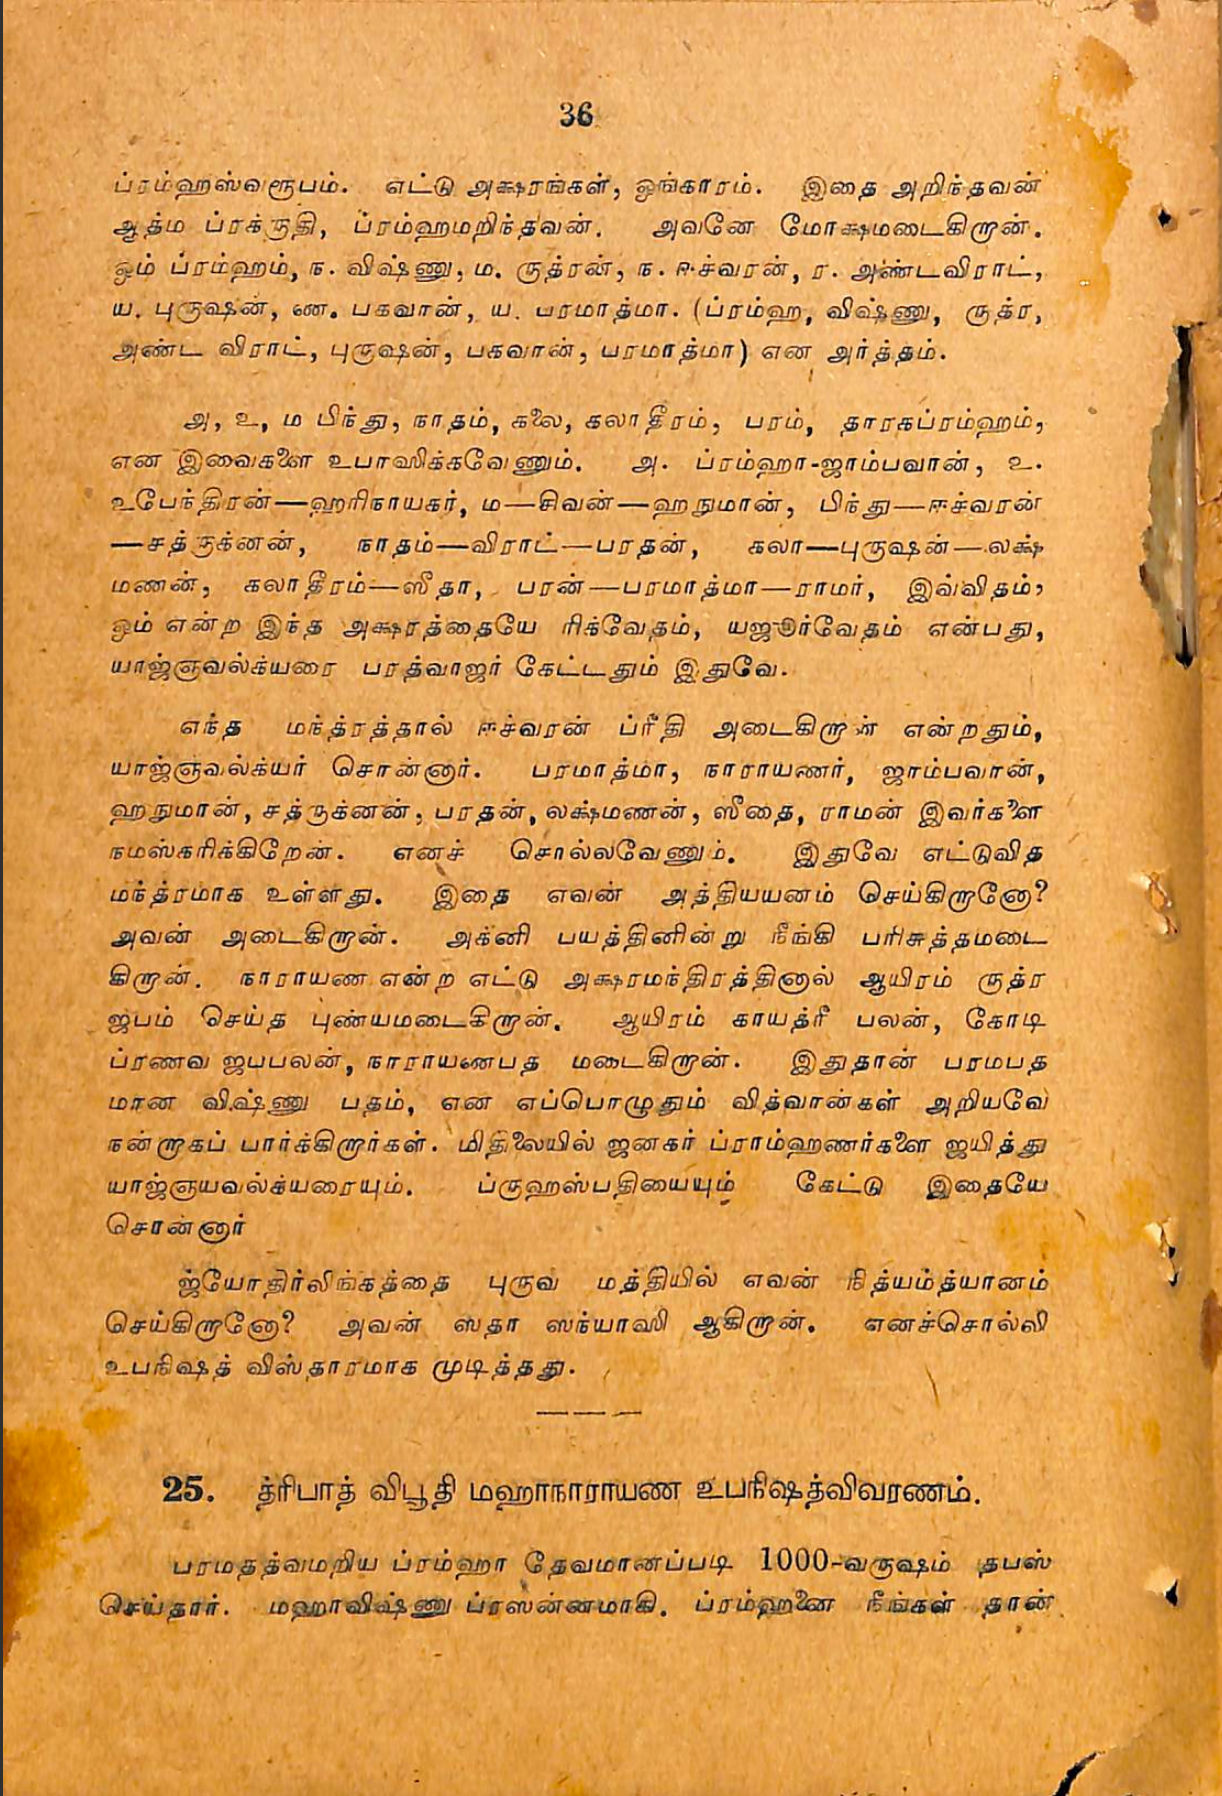 36
ப்ரம்ஹஸ்வரூபம். எட்டு அக்ஷரங்கள், ஓங்காரம். இதை அறிந்தவன்
ஆத்ம ப்ரக்ருதி, ப்ரம்ஹமறிந்தவன். அவனே மோக்ஷமடைகிறான்.
ஓம் ப்ரம்ஹம், ந. விஷ்ணு, ம. ருத்ரன், ந. ஈச்வரன், ர. அண்டவிராட்,
ய. புருஷன், ண. பகவான், ய. பரமாத்மா. (ப்ரம்ஹ, விஷ்ணு, ருத்ர,
அண்ட விராட், புருஷன், பகவான், பரமாத்மா) என அர்த்தம்.
அ, உ, ம பிந்து, நாதம், கலை, கலாதீரம், பரம், தாரகப்ரம்ஹம்,
என இவைகளை உபாஸிக்கவேணும். அ. ப்ரம்ஹா-ஜாம்பவான், உ.
உபேந்திரன்—ஹரிநாயகர், ம—சிவன்—ஹநுமான், பிந்து—ஈச்வரன்
—சத்ருக்னன், நாதம்—விராட்—பரதன், கலா—புருஷன்—லக்ஷ்
மணன், கலாதீரம்—ஸீதா, பரன்—பரமாத்மா—ராமர், இவ்விதம்,
ஓம் என்ற இந்த அக்ஷரத்தையே ரிக்வேதம், யஜூர்வேதம் என்பது,
யாஜ்ஞவல்க்யரை பரத்வாஜர் கேட்டதும் இதுவே.
எந்த மந்த்ரத்தால் ஈச்வரன் ப்ரீதி அடைகிறான் என்றதும்,
யாஜ்ஞவல்க்யர் சொன்னார். பரமாத்மா, நாராயணர், ஜாம்பவான்,
ஹநுமான், சத்ருக்னன், பரதன், லக்ஷ்மணன், ஸீதை, ராமன் இவர்களை
நமஸ்கரிக்கிறேன். எனச் சொல்லவேணும். இதுவே எட்டுவித
மந்த்ரமாக உள்ளது. இதை எவன் அத்தியயனம் செய்கிறானோ?
அவன் அடைகிறான். அக்னி பயத்தினின்று நீங்கி பரிசுத்தமடை
கிறான். நாராயண என்ற எட்டு அக்ஷரமந்திரத்தினால் ஆயிரம் ருத்ர
ஜபம் செய்த புண்யமடைகிறான். ஆயிரம் காயத்ரீ பலன், கோடி
ப்ரணவ ஜபபலன், நாராயணபத மடைகிறான். இதுதான் பரமபத
மான விஷ்ணு பதம், என எப்பொழுதும் வித்வான்கள் அறியவே
நன்றாகப் பார்க்கிறார்கள். மிதிலையில் ஜனகர் ப்ராம்ஹணர்களை ஜயித்து
யாஜ்ஞயவல்க்யரையும். ப்ருஹஸ்பதியையும் கேட்டு இதையே
சொன்னார்
ஜ்யோதிர்லிங்கத்தை புருவ மத்தியில் எவன் நித்யம்த்யானம்
செய்கிறானோ? அவன் ஸ்தா ஸந்யாஸி ஆகிறான். எனச்சொல்லி
உபநிஷத் விஸ்தாரமாக முடித்தது.
25. த்ரிபாத் விபூதி மஹாநாராயண உபநிஷத்விவரணம்.
பரமதத்வமறிய ப்ரம்ஹா தேவமானப்படி 1000-வருஷம் தபஸ்
செய்தார். மஹாவிஷ்ணு ப்ரஸன்னமாகி. ப்ரம்ஹனை நீங்கள் தான்